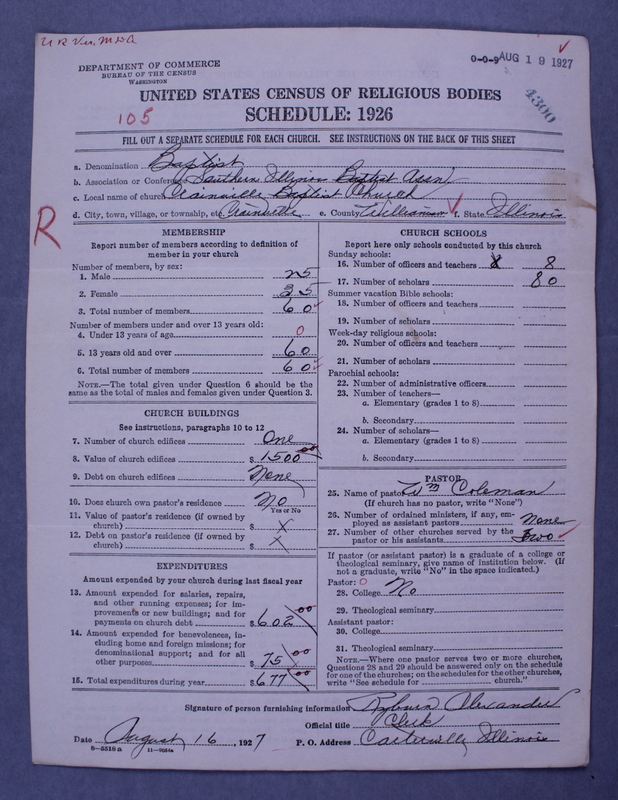 DEPARTMENT OF COMMERCE
BUREAU OF THE CENSUS
WASHINGTON
0-0-9 AUG 19 1927
4300
UNITED STATES CENSUS OF RELIGIOUS BODIES
105
SCHEDULE: 1926
FILL OUT A SEPARATE SCHEDULE FOR EACH CHURCH. SEE INSTRUCTIONS ON THE BACK OF THIS SHEET
a. Denomination Baptist
b. Association or Conference Southern Illinois Baptist Assn
c. Local name of church Crainville Baptist Church
d. City, town, village, or township, etc. Crainville e. County Williamson f. State Illinois
R
MEMBERSHIP
Report number of members according to definition of member in your church
Number of members, by sex:
1. Male 25
2. Female 35
3. Total number of members 60
Number of members under and over 13 years old:
4. Under 13 years of age 0
5. 13 years old and over 60
6. Total number of members 60
NOTE.—The total given under Question 6 should be the same as the total of males and females given under Question 3.
CHURCH BUILDINGS
See instructions, paragraphs 10 to 12
7. Number of church edifices One
8. Value of church edifices $1500 00
9. Debt on church edifices None
10. Does church own pastor's residence No
Yes or No
11. Value of pastor's residence (if owned by church) $ X
12. Debt on pastor's residence (if owned by church) $ X
EXPENDITURES
Amount expended by your church during last fiscal year
13. Amount expended for salaries, repairs, and other running expenses; for improvements or new buildings; and for payments on church debt $602 00
14. Amount expended for benevolences, including home and foreign missions; for denominational support; and for all other purposes $75 00
15. Total expenditures during year $677 00
CHURCH SCHOOLS
Report here only schools conducted by this church
Sunday schools:
16. Number of officers and teachers 8
17. Number of scholars 80
Summer vacation Bible schools:
18. Number of officers and teachers
19. Number of scholars
Week-day religious schools:
20. Number of officers and teachers
21. Number of scholars
Parochial schools:
22. Number of administrative officers
23. Number of teachers—
a. Elementary (grades 1 to 8)
b. Secondary
24. Number of scholars—
a. Elementary (grades 1 to 8)
b. Secondary
PASTOR
25. Name of pastor Wm Coleman
(If church has no pastor, write "None")
26. Number of ordained ministers, if any, employed as assistant pastors None
27. Number of other churches served by the pastor or his assistants Two
If pastor (or assistant pastor) is a graduate of a college or theological seminary, give name of institution below. (If not a graduate, write "No" in the space indicated.)
Pastor: 0
28. College No
29. Theological seminary
Assistant pastor:
30. College
31. Theological seminary
NOTE.—Where one pastor serves two or more churches, Questions 28 and 29 should be answered only on the schedule for one of the churches; on the schedules for the other churches, write "See schedule for church."
Signature of person furnishing information Alexander
Official title Clerk
Date August 16, 1927 P. O. Address Carterville Illinois
8-5518a